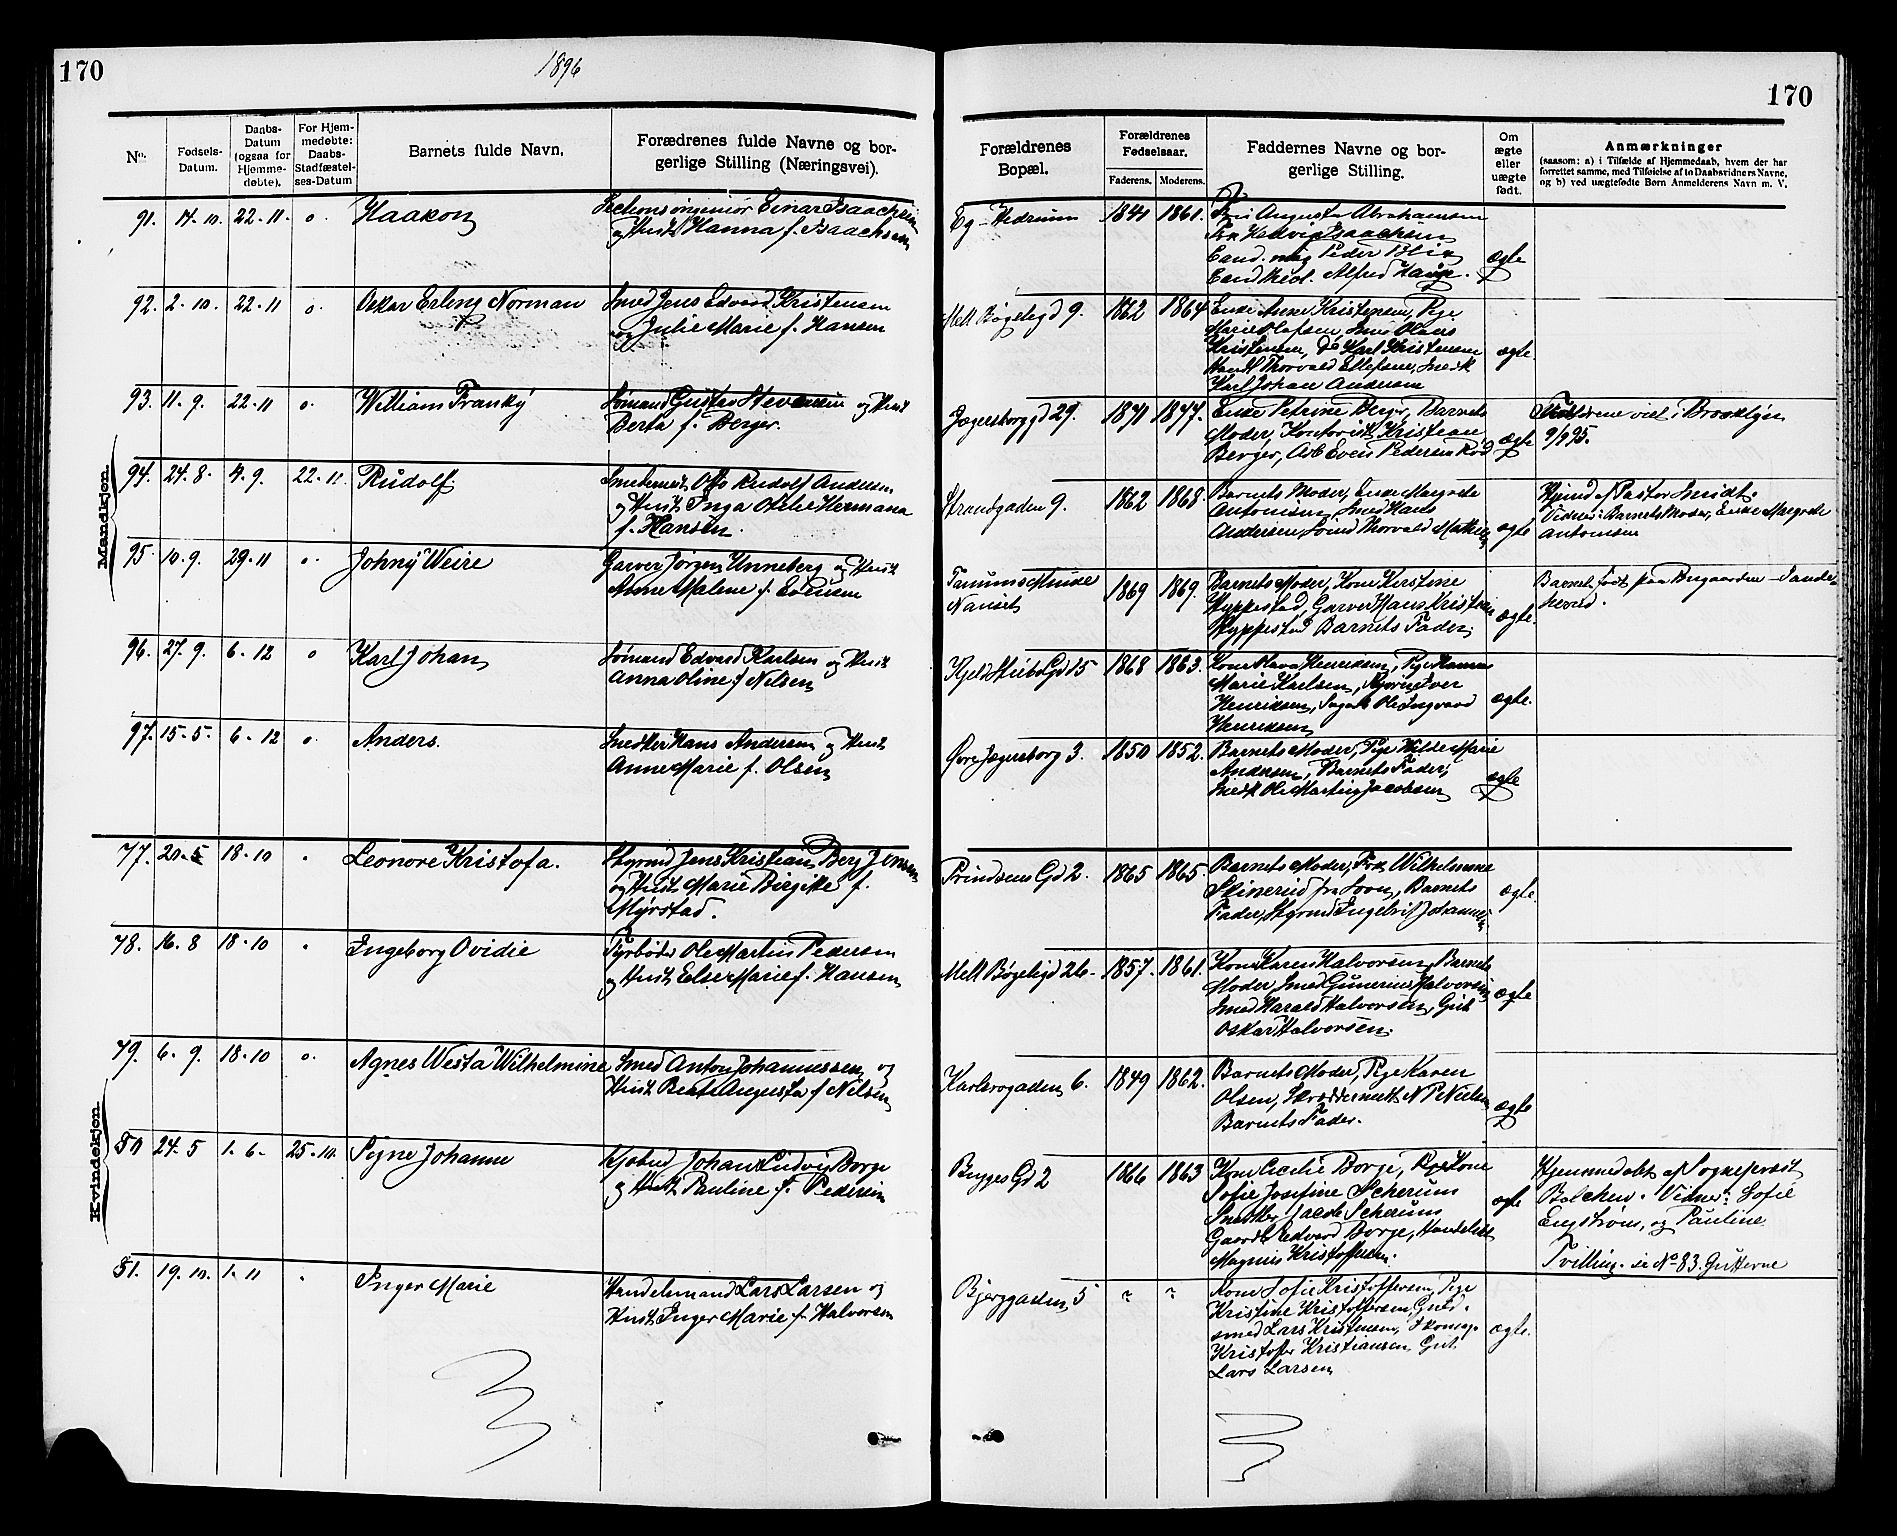 170
1896
170
No.
Fødsels-Datum.
Daabs-Datum (ogsaa for Hjemme-døbte).
For Hjem-medøbte: Daabs-Stadfæstel-ses-Datum
Barnets fulde Navn.
Forædrenes fulde Navne og bor-
gerlige Stilling (Næringsvei).
Forældrenes Bopæl.
Forældrenes Fødselsaar.
Faderens. Moderens.
Faddernes Navne og bor-
gerlige Stilling.
Om ægte eller uægte født.
Anmærkninger
(saasom: a) i Tilfælde af Hjemmedaab, hvem der har
forrettet samme, med Tilføielse af to Daabsvidners Navne,
og b) ved uægtefødte Børn Anmelderens Navn m. V.
Mandkjøn.
91. 14. 10. 22. 11. o. Haakon
Einar Isaachsen
og Hust Hanna f. Isaachsen
Eg - Hedrum 1841 1861.
Augusta Abrahamsen
Hedvig Isaachsen
Cand. mag Peder Blix
Alfred Hauge.
ægte
92. 2. 10. 22. 11 o. Oskar Erling Norman
Smed Jens Edvard Kristensen
og Julie Marie f. Hansen
Mell Bøgeligd 9. 1862 1864
Enke Anne Kristensen, Pige
Marie Olafsen, Smed Olaus
Kristensen, Do Karl Kristensen
Thorvald Ellefsen, Snedk
Karl Johan Andersen
ægte
93. 11. 9. 22. 11 o. William Franky
Sømand Gustav Stevensen og Hust
Berta f. Berger.
Jegersborggd 29. 1871 1877.
Enke Petrine Berger, Barnets
Moder, Kontorist Kristian
Berger, Arb Even Pedersen
ægte
Forældrene viet i Brooklyn
9/9 95.
94. 24. 8. 4. 9. 22. 11. Rudolf
Smedemest. Otto Rudolf Andersen
og Hust Inga Otelie Hermana
f. Hansen.
Strandgaden 9. 1862 1868.
Barnets Moder, Enke Margrete
Antonisen, Smed Hans
Andersen, Sømd Thorvald
ægte
Hjmd af Pastor Smidt.
Vidner: Barnets Moder, Enke Margrete
Antonisen
95. 10. 9. 29. 11 o. Johny Weire
Garver Jørgen Unneberg og Hust
Anne Malene f. Evensen
Tanums
Nanset 1869 1869.
Barnets Moder, Kone Kirstine
Hyppestad, Garver Hans Kristian
Hyppestad Barnets Fader.
ægte.
Barnet født paa Bugaarden - Sande-
herred.
96. 27. 9. 6. 12 o Karl Johan
Sømand Edvard Karlsen og Hust
Anna Oline f Nilsen
Kjeld Stubs Gd 15 1868 1863.
Kone Henriksen, Pige Hanna
Marie Karlsen, Iver
Henriksen, Ole Ingvard
Henriksen
ægte.
97. 15. 5. 6. 12 o. Anders.
Snedker Hans Andersen og Hust
Anne Marie f. Olsen
Øvre Jegersborg 3. 1850 1852.
Barnets Moder, Pige Hilde Marie
Andersen, Barnets Fader,
Snedk Ole Martin Jacobsen
ægte
Kvindekjøn.
77. 20. 5 18. 10 . Leonore Kristofa.
Styrmd Jens Kristian Berg Jensen
og Hust Marie Birgitte f.
Myrstad.
Prindsens Gd 2. 1865 1865.
Barnets Moder, Frk Wilhelmine
Skinerud fra Barnets
Fader, Styrmd Engebrit Johannesen
ægte.
78. 16. 8 18. 10 . Ingeborg Ovidie
Fyrbøder Ole Martin Pedersen
og Hust Else Marie f. Hansen
Mell Bøgeligd 26. 1857. 1861.
Kone Karen Halvorsen, Barnets
Moder, Smed Gunerius Halvorsen
Smed Harald Halvorsen, Gut
Oskar Halvorsen.
ægte
79. 6. 9. 18. 10 o. Agnes Westa Wilhelmine
Smed Anton Johannessen og
Hust Beate Augusta f Nilsen
Karlsrogaden 6. 1849 1862.
Barnets Moder, Pige Karen
Olsen, Skræddermest. N P Nielsen
Barnets Fader.
ægte
80 24. 5 1. 6. 25. 10. Signe Johanne
Johan Ludvig Borge
og Hust Pauline f. Pedersen
Brygges Gd 2 1866 1863
Kone Cecilie Borge,
Sofie Josefine Scherum
Snedker Jacob Scherum
Edvard Borge,
Magnus Kristoffersen.
ægte
Hjemmedøbt af Sognepræst
Balchen. Vidner: Sofie
Engstrøm, og Pauline
Tvilling. se No 83. Gutterne
81. 19. 10. 1. 11 . Inger Marie
Handelsmand Lars Larsen og
Hust Inger Marie f. Halvorsen
Bjerggaden 5 ? ?
Kone Sofie Kristoffersen, Pige
Kristine Kristoffersen, Guld-
smed Lars Kristensen, Skomag.
Kristoffer Kristiansen, Gut
Lars Larsen
ægte.